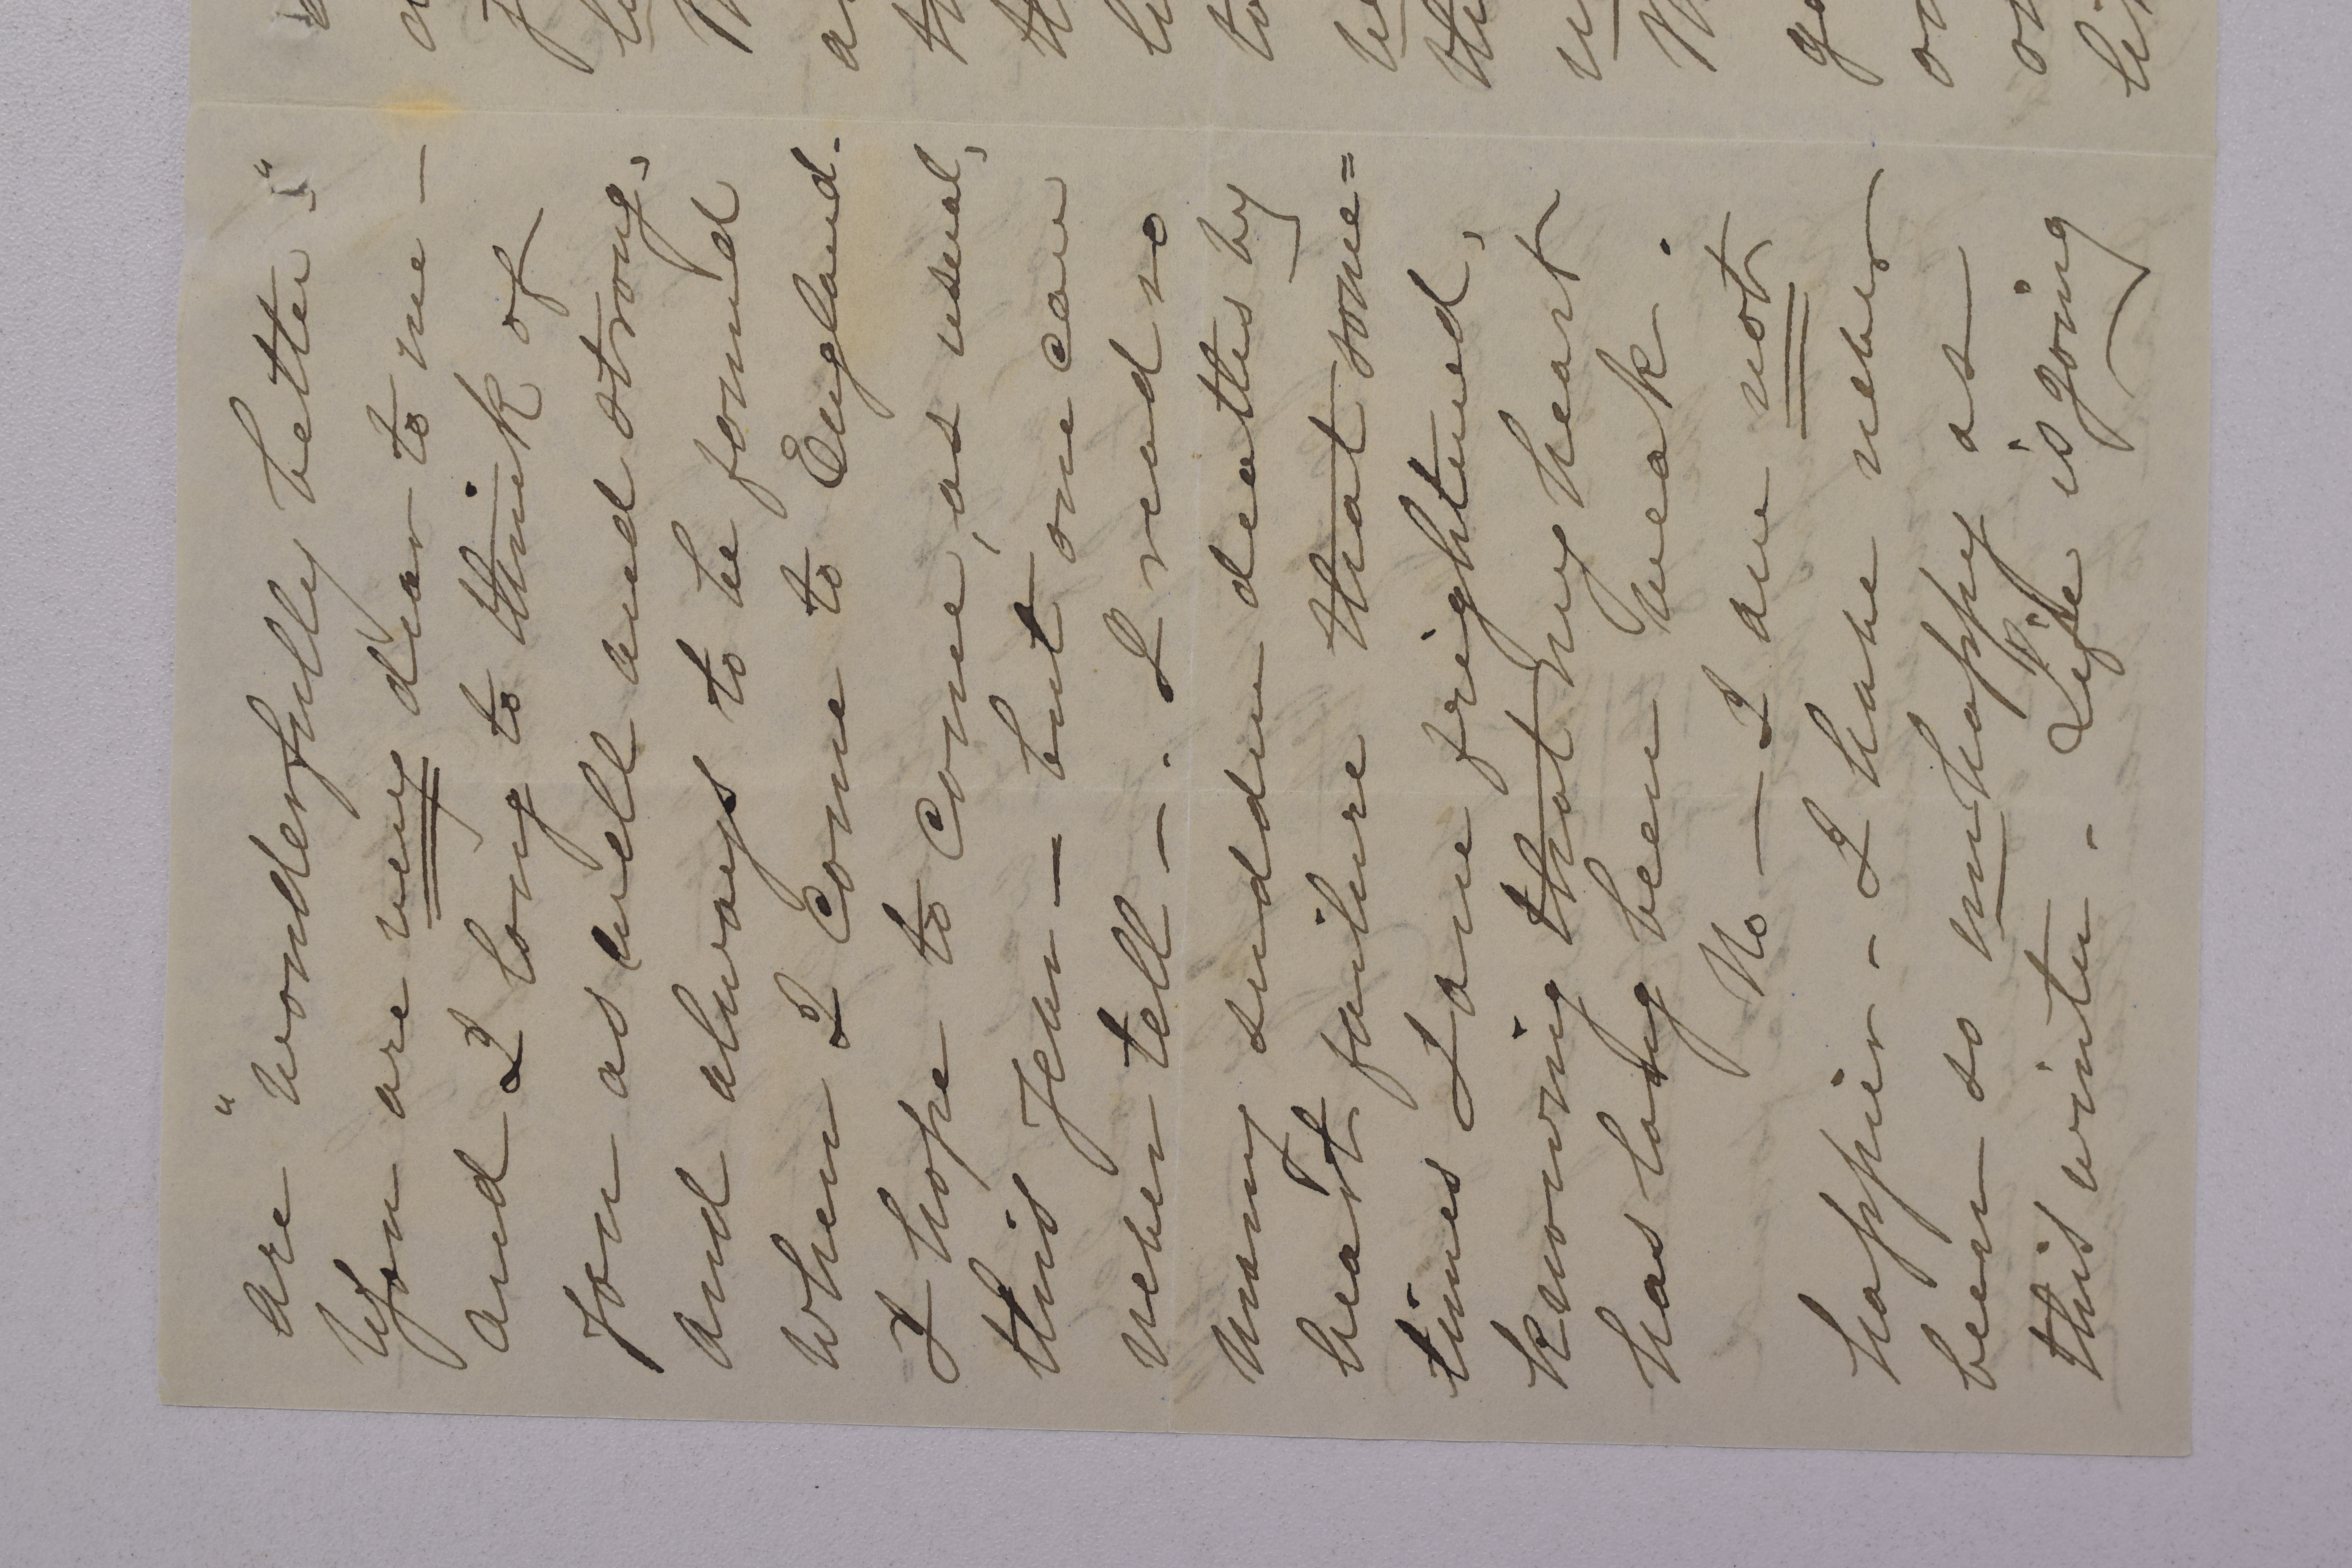 are "wonderfully better"
You are very dear to me —
and I long to think of
you as well and strong,
and always to be found
when I come to England.
I hope to come, as usual,
this year — but one can
never tell — . I read so
many sudden deaths by
heart failure that some=
times I are frightened,
knowing that my heart
has long been weak.
No — I am not
happier - I have never
been so unhappy as
this winter - Life is going